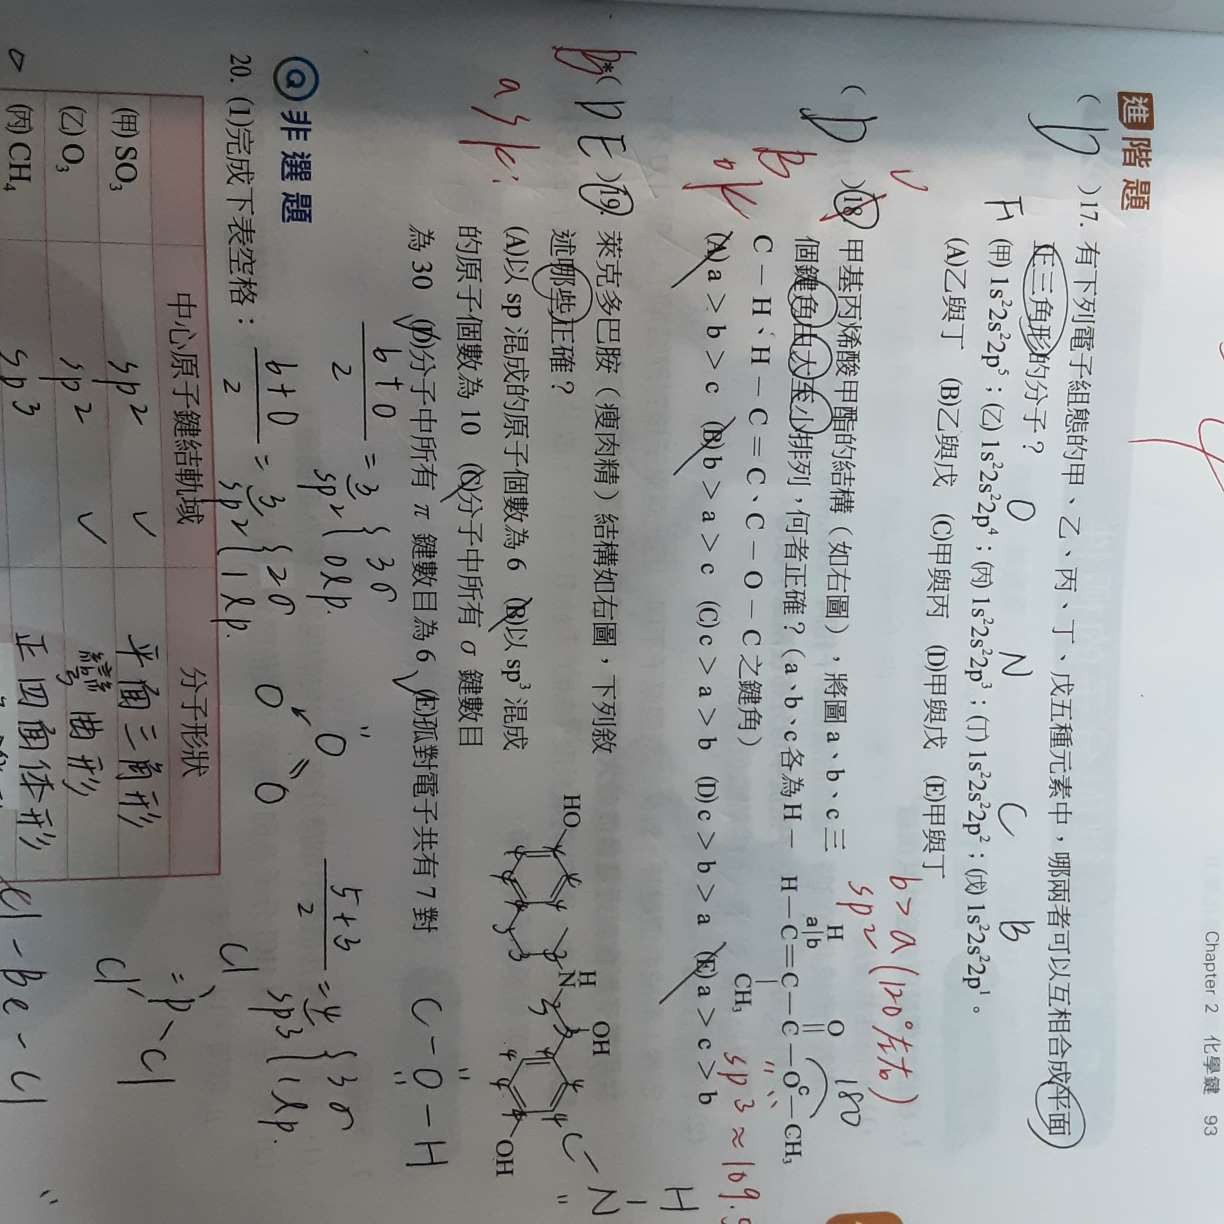 Chapter 2 化學鍵 93
進階題
( D )17. 有下列電子組態的甲、乙、丙、丁、戊五種元素中，哪兩者可以互相合成平面
正三角形的分子？
F O N C B
(甲) 1s²2s²2p⁵；(乙) 1s²2s²2p⁴；(丙) 1s²2s²2p³；(丁) 1s²2s²2p²；(戊) 1s²2s²2p¹。
(A)乙與丁 (B)乙與戊 (C)甲與丙 (D)甲與戊 (E)甲與丁
b > a (120°左右)
sp2
( D )18. 甲基丙烯酸甲酯的結構（如右圖），將圖 a、b、c 三
個鍵角由大至小排列，何者正確？（a、b、c 各為 H－
C－H、H－C＝C、C－O－C 之鍵角）
(A) a > b > c (B) b > a > c (C) c > a > b (D) c > b > a (E) a > c > b
B
H O 180
H－C＝C－C－O－CH₃
a b c
CH₃
sp3 ≈ 109.5
*( D E )19. 萊克多巴胺（瘦肉精）結構如右圖，下列敘
述哪些正確？
(A)以 sp 混成的原子個數為 6 (B)以 sp³ 混成
的原子個數為 10 (C)分子中所有 σ 鍵數目
為 30 (D)分子中所有 π 鍵數目為 6 (E)孤對電子共有 7 對
HO H N OH OH
C－N－H
C－O－H
6+0
2
=3 {3σ
sp2 0lp.
Q 非選題
20. (1)完成下表空格：
6+0
2
=3 {2σ
sp2 1lp.
O O O
5+3
2
=4 {3σ
sp3 1lp.
Cl P Cl Cl
中心原子鍵結軌域 分子形狀
(甲) SO₃ sp2 ✓ 平面三角形
(乙) O₃ sp2 ✓ 彎曲形
(丙) CH₄ sp3 正四面体形
Cl－Be－Cl